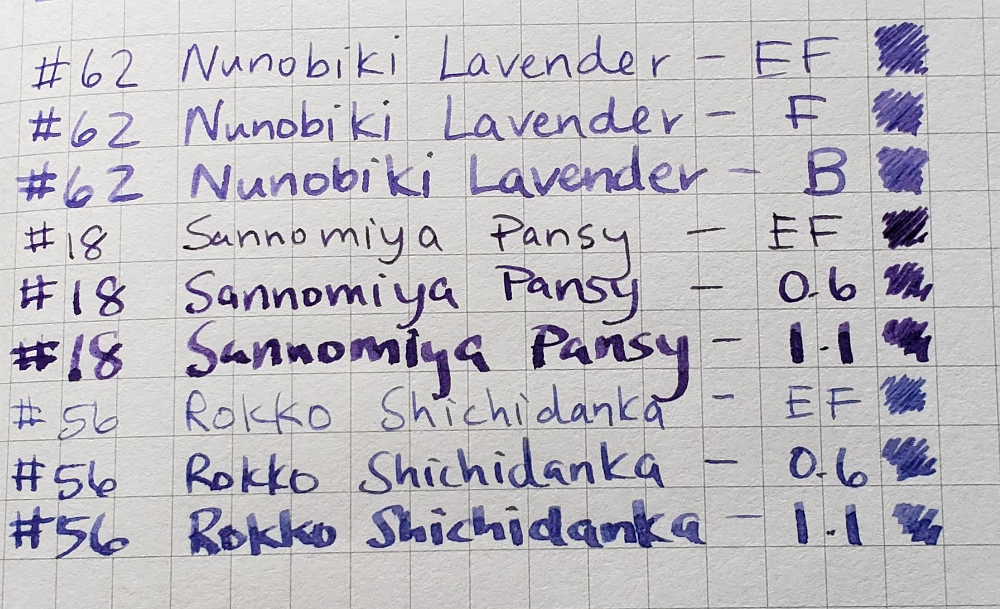 #62 Nunobiki Lavender - EF
#62 Nunobiki Lavender - F
#62 Nunobiki Lavender - B
#18 Sannomiya Pansy - EF
#18 Sannomiya Pansy - 0.6
#18 Sannomiya Pansy - 1.1
#56 Rokko Shichidanka - EF
#56 Rokko Shichidanka - 0.6
#56 Rokko Shichidanka - 1.1